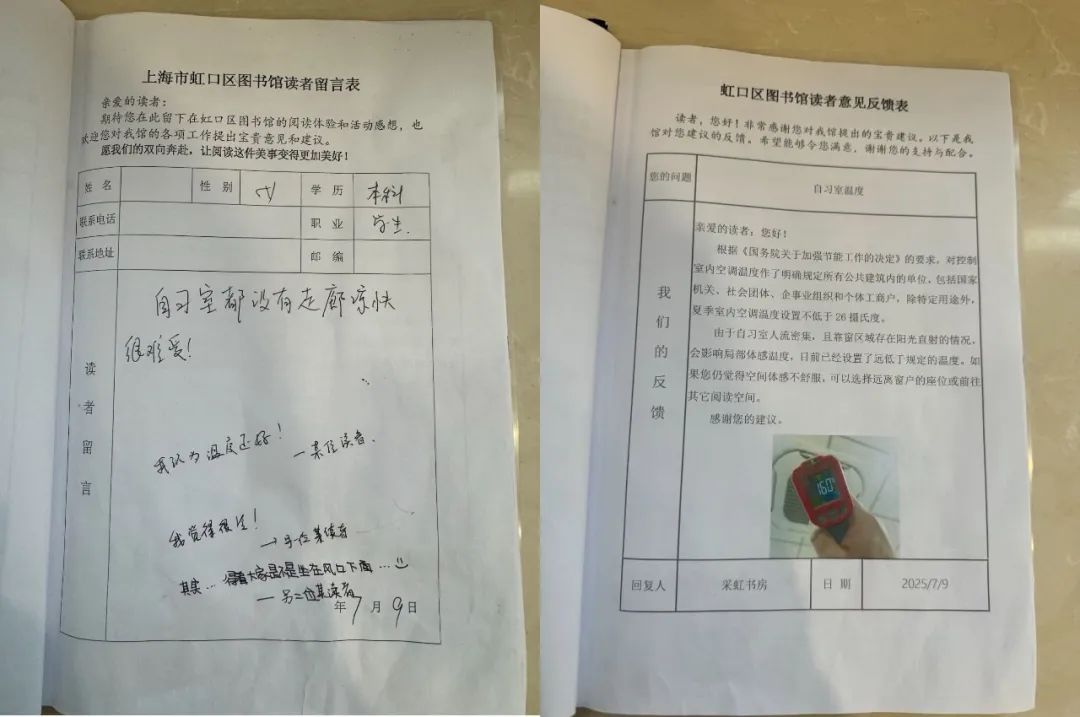 上海市虹口区图书馆读者留言表
亲爱的读者：
期待您在此留下在虹口区图书馆的阅读体验和活动感想，也
欢迎您对我馆的各项工作提出宝贵意见和建议。
愿我们的双向奔赴，让阅读这件美事变得更加美好！
姓 名 性 别 女 学 历 本科
联系电话 职 业 学生.
联系地址 邮 编
读者留言
自习室都没有走廊凉快
很难受！
我认为温度还好！
—某位读者.
我觉得很冷！
→另一位某读者
其实… 得看大家是不是坐在风口下面…
— 另二位某读者
年7月9日
虹口区图书馆读者意见反馈表
读者，您好！非常感谢您对我馆提出的宝贵建议。以下是我
馆对您建议的反馈。希望能够令您满意，谢谢您的支持与配合。
您的问题 自习室温度
我们的反馈
亲爱的读者：您好！
根据《国务院关于加强节能工作的决定》的要求，对控制
室内空调温度作了明确规定所有公共建筑内的单位，包括国家
机关、社会团体、企事业组织和个体工商户，除特定用途外，
夏季室内空调温度设置不低于 26 摄氏度。
由于自习室人流密集，且靠窗区域存在阳光直射的情况，
会影响局部体感温度，目前已经设置了远低于规定的温度。如
果您仍觉得空间体感不舒服，可以选择远离窗户的座位或前往
其它阅读空间。
感谢您的建议。
回复人 采虹书房 日 期 2025/7/9